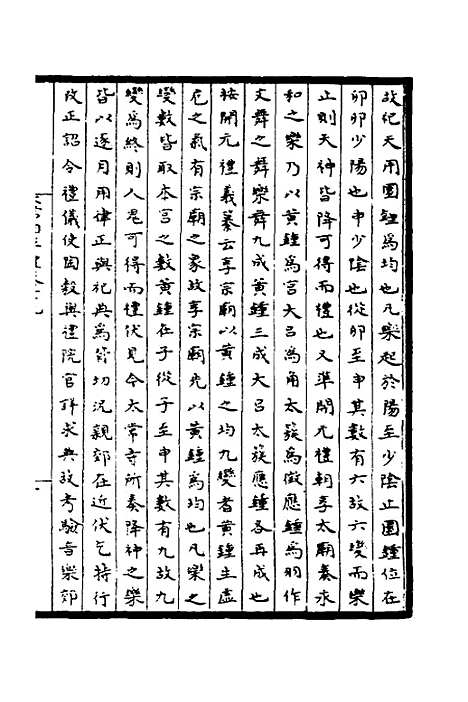 故祀天用圜鍾爲均也凡樂起於陽至少陰止圜鍾位在
卯卯少陽也申少陰也從卯至申其數有六故六變而樂
止則天神皆降可得而禮也又準開元禮朝享太廟奏永
和之樂乃以黃鍾爲宮大呂爲角太簇爲徵應鍾爲羽作
文舞之舞樂舞九成黃鍾三成大呂太簇應鍾各再成也
按開元禮義纂云享宗廟以黃鍾之均九變者黃鍾生虛
危之氣有宗廟之象故享宗廟先以黃鍾爲均也凡樂之
變數皆取本宮之數黃鍾在子從子至申其數有九故九
變爲終則人鬼可得而禮伏見今太常寺所奏降神之樂
皆以逐月用律正與祀典爲皆切況親郊在近伏乞特行
改正詔令禮儀使陶穀與禮院官詳求典故考驗音樂郊